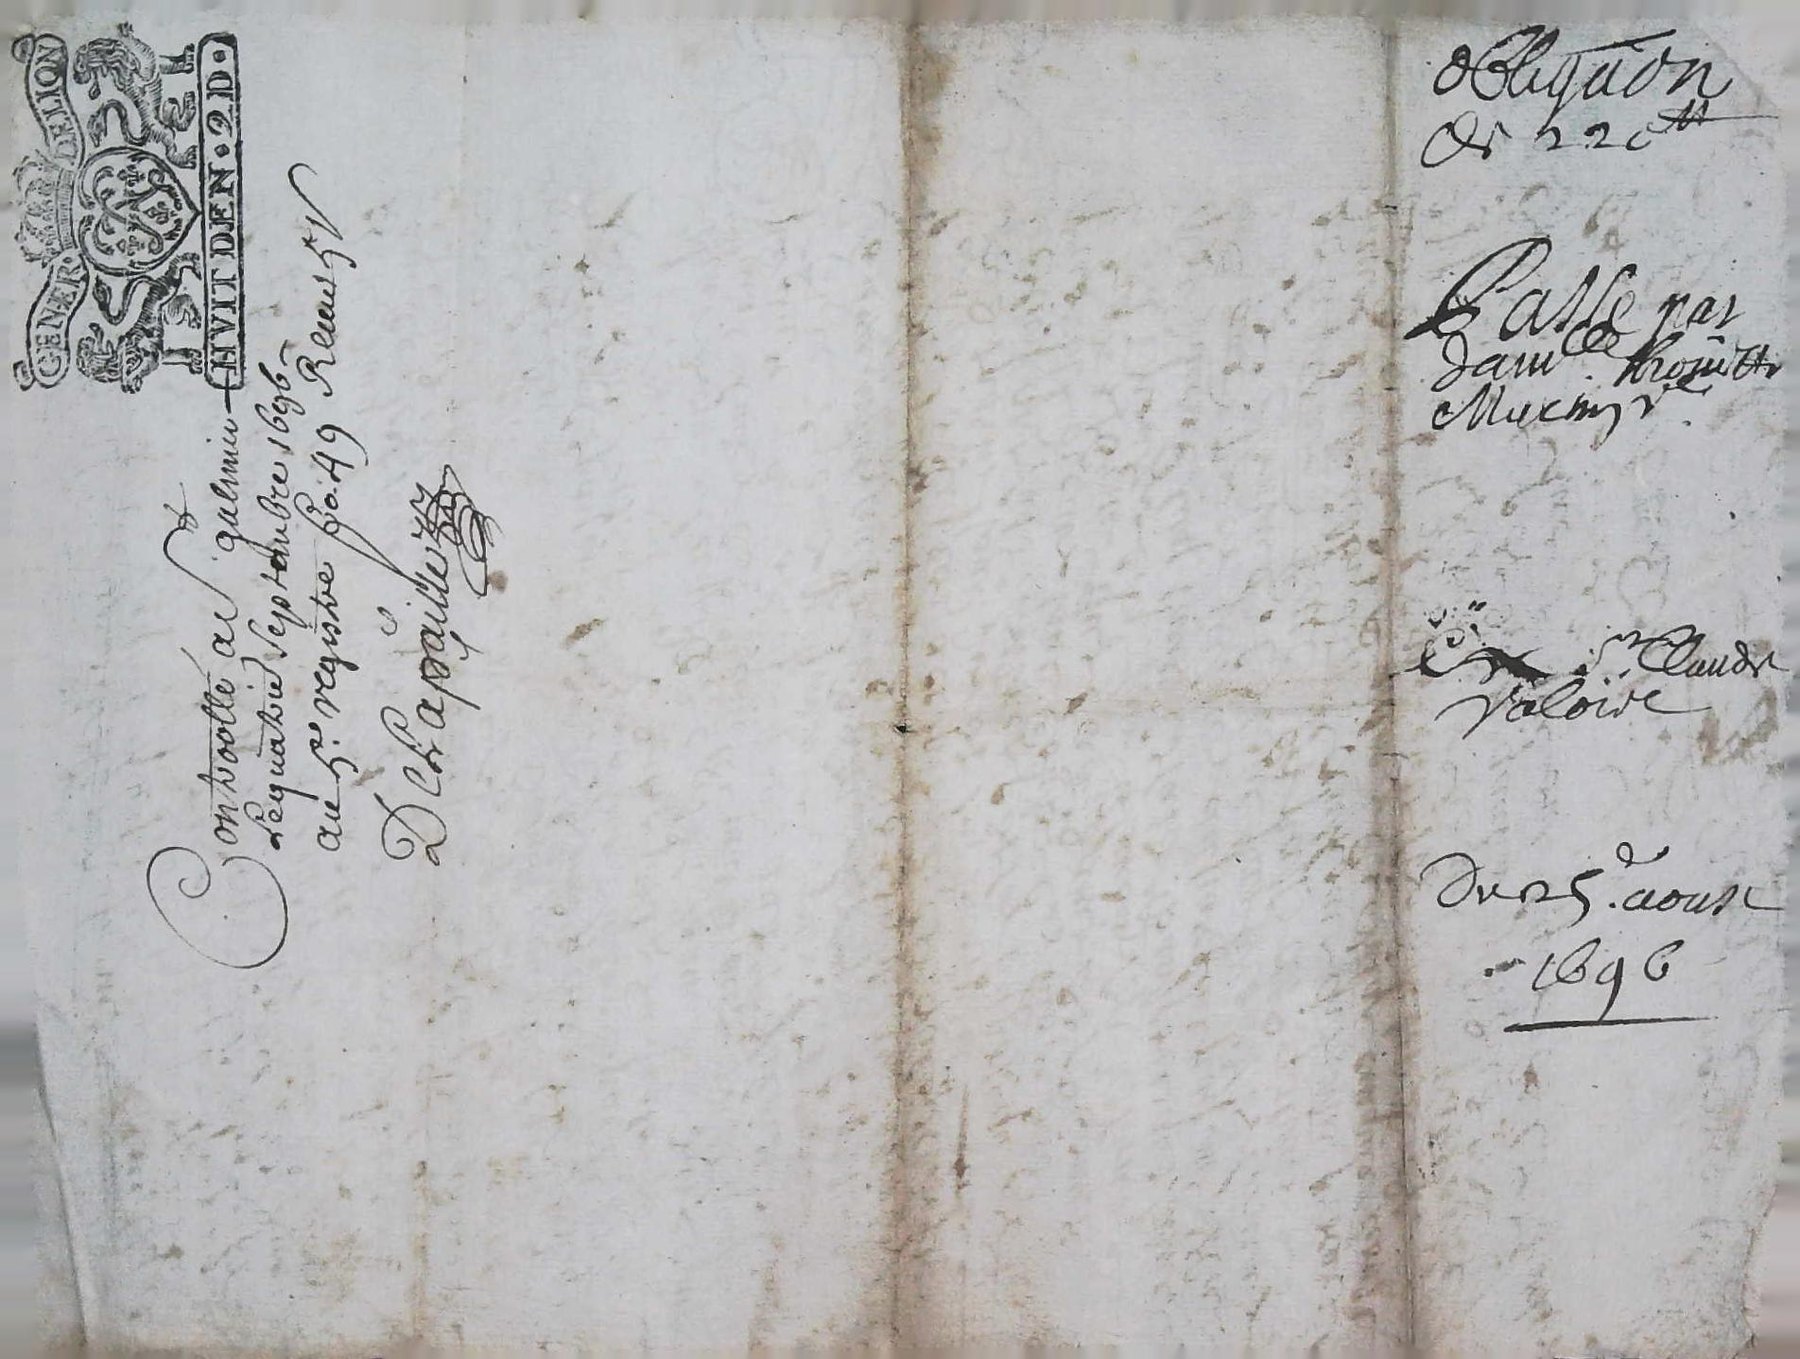 GENER. DE LION
HVIT DEN. 2 D.
Controollé a St galmier
le quatrie septembre 1696
au 5e. registre fo. 49 Receu 5s
DeChapuille
obligãon
de 220 lt
Passé par
dam.lle
Sr Claude
Valoire
Du 25.e aoust
1696